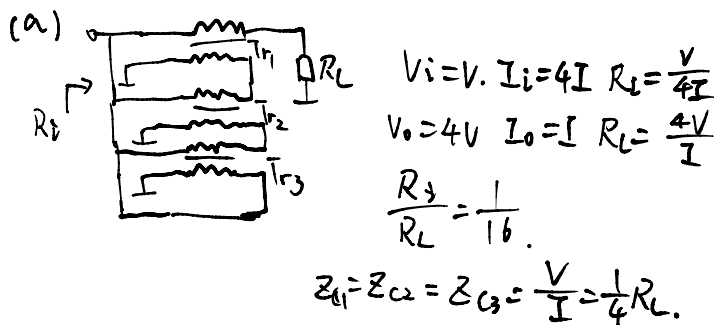 (a)
Tr1
RL
Ri
Tr2
Tr3
Vi=V. Ii=4I Ri=V/4I
Vo=4V Io=I RL=4V/I
Ri/RL=1/16.
Zc1=Zc2=Zc3=V/I=1/4RL.